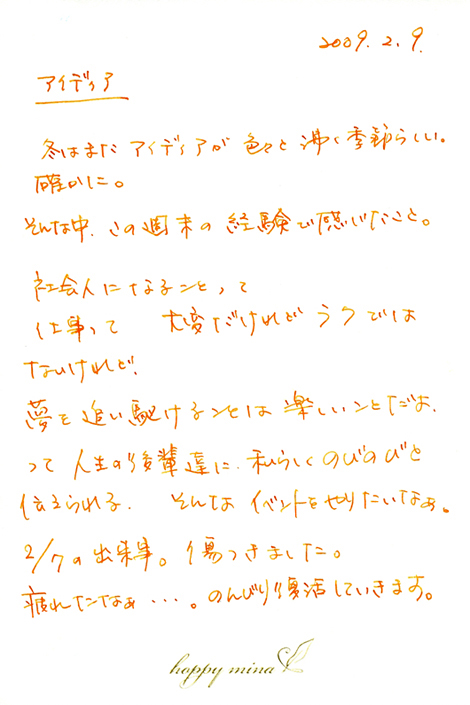 2009. 2. 9.
アイディア
冬はまた アイディアが 色々と 沸く季節らしい。
確かに。
そんな中、この週末の 経験で感じたこと。
社会人になることって
仕事って 大変だけれど ラクでは
ないけれど!
夢を 追い駆けることは 楽しいことだよ、
って 人生の後輩達に、私らしくのびのびと
伝えられる、 そんな イベントをやりたいなぁ。
2/7の出来事。傷つきました。
疲れたなぁ・・・。のんびり復活していきます。
happy mina